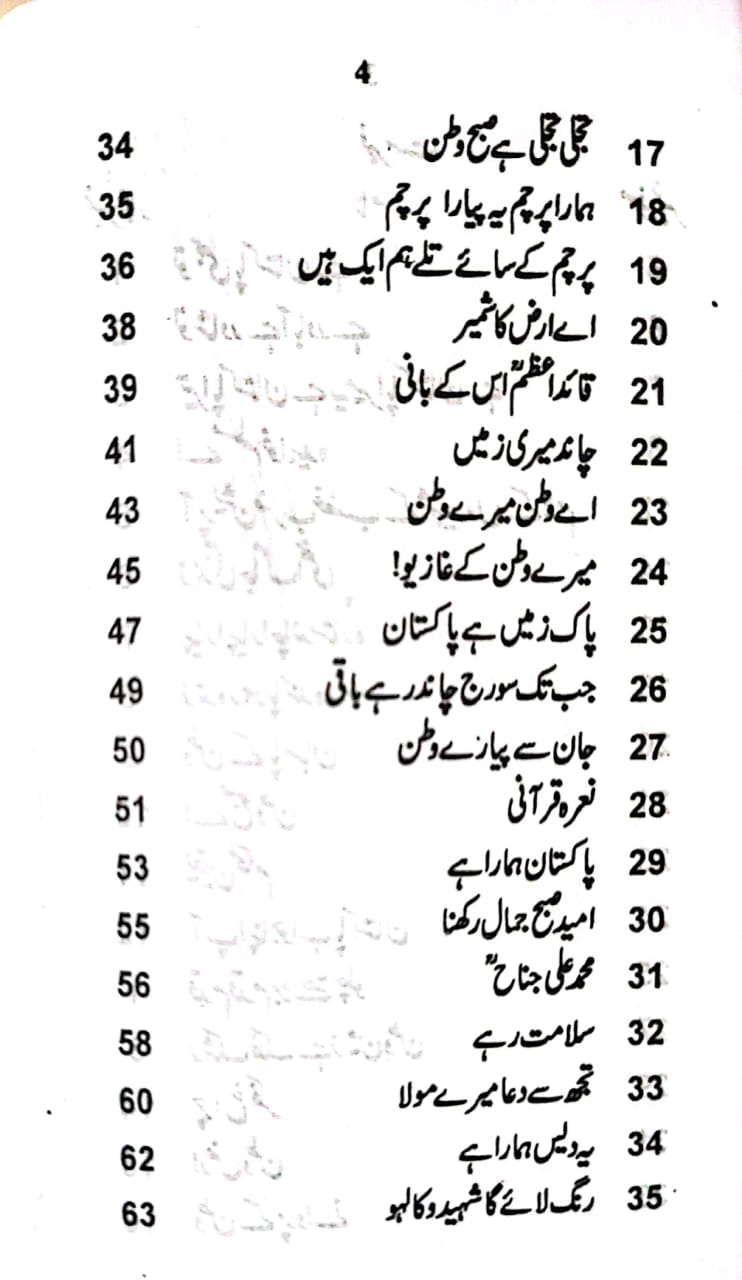 4
17 تجلی تجلی ہے صبح وطن 34
18 ہمارا پرچم یہ پیارا پرچم 35
19 پرچم کے سائے تلے ہم ایک ہیں 36
20 اے ارض کاشمیر 38
21 قائداعظمؒ اس کے بانی 39
22 چاند میری زمیں 41
23 اے وطن میرے وطن 43
24 میرے وطن کے غازیو! 45
25 پاک زمیں ہے پاکستان 47
26 جب تک سورج چاند رہے باقی 49
27 جان سے پیارے وطن 50
28 نعرہ قرآنی 51
29 پاکستان ہمارا ہے 53
30 امید صبح جمال رکھنا 55
31 محمد علی جناحؒ 56
32 سلامت رہے 58
33 تجھ سے دعا میرے مولا 60
34 یہ دیس ہمارا ہے 62
35 رنگ لائے گا شہیدو کا لہو 63